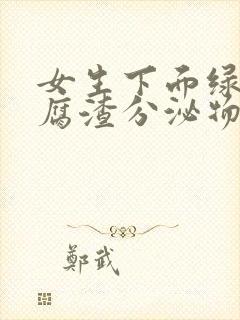 女生下面绿
腐渣分泌物
鄭武